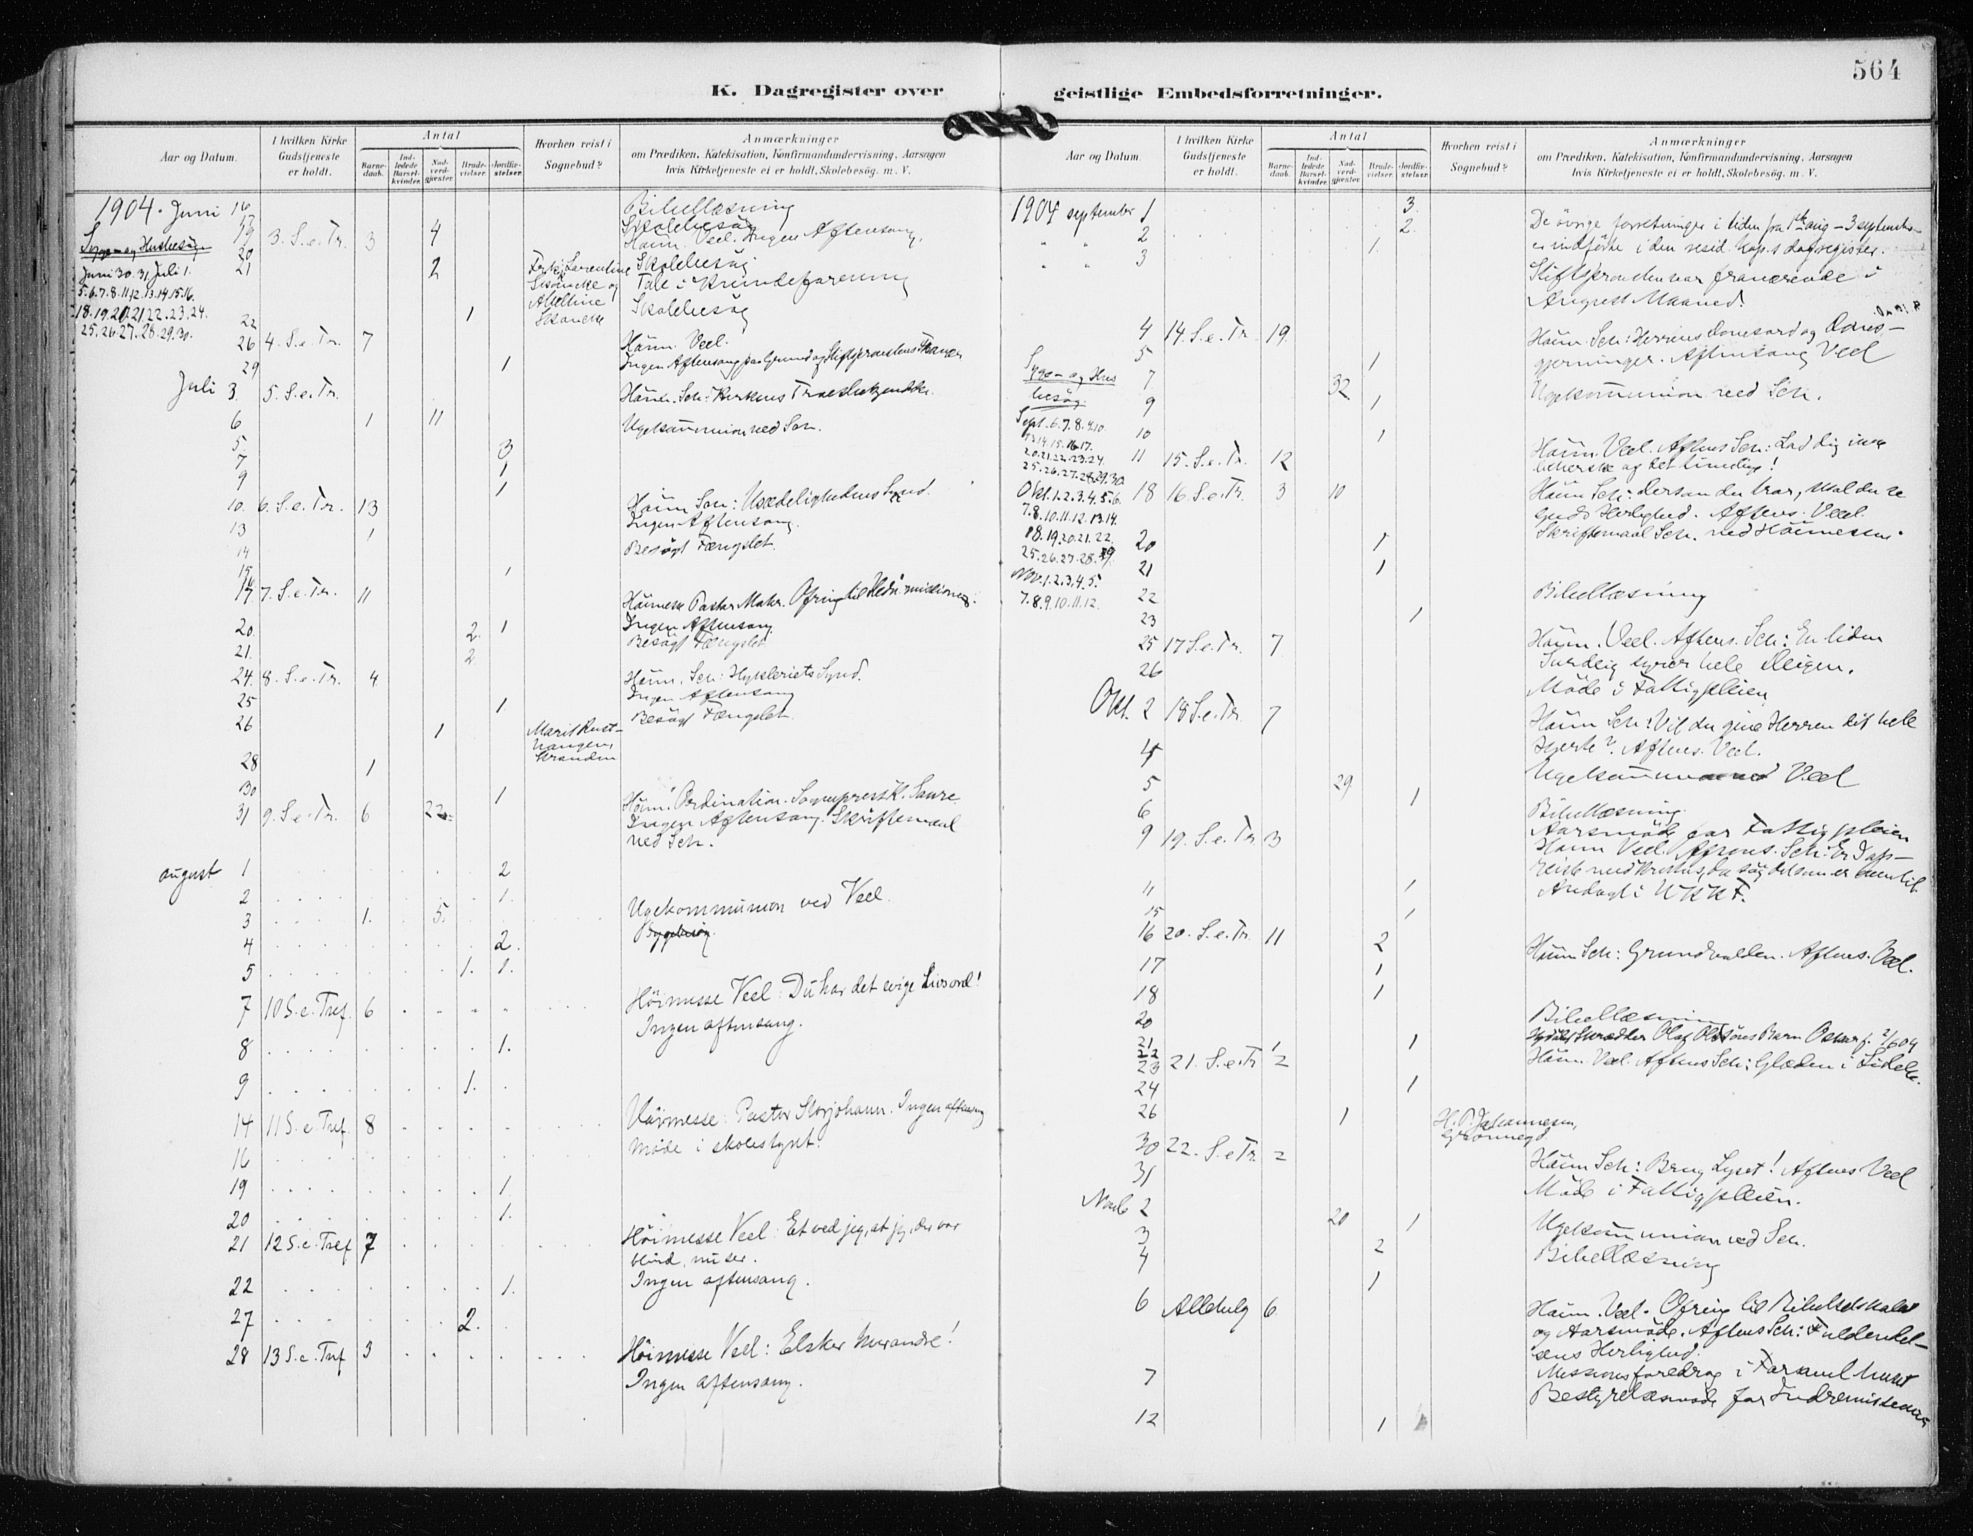 564
K. Dagregister over geistlige Embedsforretninger.
Aar og Datum.
I hvilken Kirke Gudstjeneste er holdt.
Antal
Barnedaab.
Indledede Barselkvinder.
Nadverdgjester
Brudevielser.
Jordfæstelser.
Hvorhen reist i Sognebud?
Anmærkninger
om Prædiken, Katekisation, Konfirmandundervisning, Aarsagen
hvis Kirketjeneste ei er holdt, Skolebesøg m. V.
1904. Juni 16 Bibellæsning
17 Skolebesøg
19 3. S. e. Tr. 3 4 Høim. Veel. Ingen Aftensang.
Syge- og Husbesøg
Juni 30. 31. Juli 1.
5.6.7.8.11.12.13.14.15.16.
18.19.20.21.22.23.24.
25.26.27.28.29.30.
20 Skolebesøg
21 2 Tale i Kvindeforening
22 1 Skolebesøg
26 4. S. e. Tr. 7 Høim. Veel.
Ingen Aftensang paa Grund af Stiftsprovstens
29 1
Juli 3 5. S. e. Tr. Høim. Sch: Kirkens
6 1 11 Ugekommunion ved Sch.
5. 3
7 1
9 1
10. 6. S. e. Tr. 13 Høim Sch: Usædelighedens Synd.
Ingen Aftensang.
13 1 Besøgt Fængslet.
14
15 1
17 7. S. e. Tr. 11 Høimesse Pastor Mohr. Ofring til
Ingen Aftensang
20. 2. 1 Besøgt Fængslet
21. 2
24. 8. S. e. Tr. 4 Høim. Sch: Hykleriets Synd.
Ingen Aftensang
25 1 Besøgt Fængslet.
26 1 Marit
28 1
30 1
31 9. S. e. Tr. 6 22. Høim. Ordination. Sogneprest K.
Ingen Aftensang. Skriftemaal
ved Sch.
august 1 2
2 1.
3 1. 5. Ugekommunion ved Veel.
4 2.
5 1. 1.
7 10 S. e. Tref. 6 Høimesse Veel: Du har det evige Livs ord!
Ingen aftensang.
8 1.
9 1.
14 11 S. e. Tref. 8 Høimesse: Pastor Storjohann. Ingen aftensang
16 Møde i skolestyret.
19 1.
20 1.
21 12 S. e. Tref 7 Høimesse Veel: Et ved jeg, at jeg, der var
blind, nu ser.
Ingen aftensang.
22 1.
27 2.
28 13 S. e. Tref 3 Høimesse Veel: Elsker hverandre!
Ingen aftensang.
Aar og Datum.
I hvilken Kirke Gudstjeneste er holdt.
Antal
Barnedaab.
Indledede Barselkvinder.
Nadverdgjester
Brudevielser.
Jordfæstelser.
Hvorhen reist i Sognebud?
Anmærkninger
om Prædiken, Katekisation, Konfirmandundervisning, Aarsagen
hvis Kirketjeneste ei er holdt, Skolebesøg m. V.
1904 september 1 3. De øvrige forretninger i tiden fra 1ste aug - 3 september
" " 2 2. er indførte i den resid. kap.s dagregister.
" " 3 1 Stiftsprovsten var fraværende i
August Maaned.
4 14. S. e. Tr. 19. Høim. Sch: Herrens og
gjerninger. Aftensang Veel
5 1
Syge- og Husbesøg.
7 32 Ugekommunion ved Sch.
9 1
Sept. 6.7.8.9.10.
13.14.15.16.17.
20.21.22.23.24.
25.26.27.28.29.30.
Okt. 1.2.3.4.5.6.
7.8.10.11.12.13.14.
18.19.20.21.22.
25.26.27.28.29.
Nov. 1.2.3.4.5.
7.8.9.10.11.12.
10 1
11 15. S. e. Tr. 12 Høim. Veel. Aftens Sch: Lad dig ikke
beherske af det timelige!
18 16 S. e. Tr. 3 10 Høim Sch: Dersom du tror, skal du se
Guds Herlighed. Aftens. Veel.
Skriftemaal Sch. ved Høimessen.
20 1
21 1
22 Bibellæsning
23 1
25 17 S. e. Tr. 7 Høim. Veel. Aftens. Sch: En liden
Surdeig syrer hele Deigen.
26 Møde i Fattigpleien
Okt. 2 18 S. e. Tr. 7 Høim Sch: Vil du give Herren dit hele
Hjerte? Aftens. Veel.
4
5 29 Ugekommunion Veel
6 1 Bibellæsning
Aarsmøde for Fattigpleien
9 19. S. e. Tr. 3 Høim Veel. Aftens. Sch: Er I opreist
med Kristus, da søg det som er
11 1 Andagt i U K K F.
15 1
16 20. S. e. Tr. 11 2 Høim Sch: Grundvolden. Aftens. Veel.
17 1
18 1
20 Bibellæsning
21 1 1 Olaf Barn Oskar f. 2/6 04
22
23 21. S. e. Tr 2 Høim. Veel. Aftens Sch: Glæden i
24 1
26 1 H. P. Johannesen,
30 22. S. e Tr. 2 Høim Sch: Brug Lyset! Aftens Veel
31 Møde i Fattigpleien.
Novb 2 20 1 Ugekommunion ved Sch.
3 2 Bibellæsning
4 1
6 Allehelg 6 Høim. Veel. Ofring til Bibelselskabet
og Aarsmøde. Aftens Sch: Fuldendelsens
Herlighed.
7 Missionsforedrag i
Bestyrelsesmøde for Indremissionen
12 1